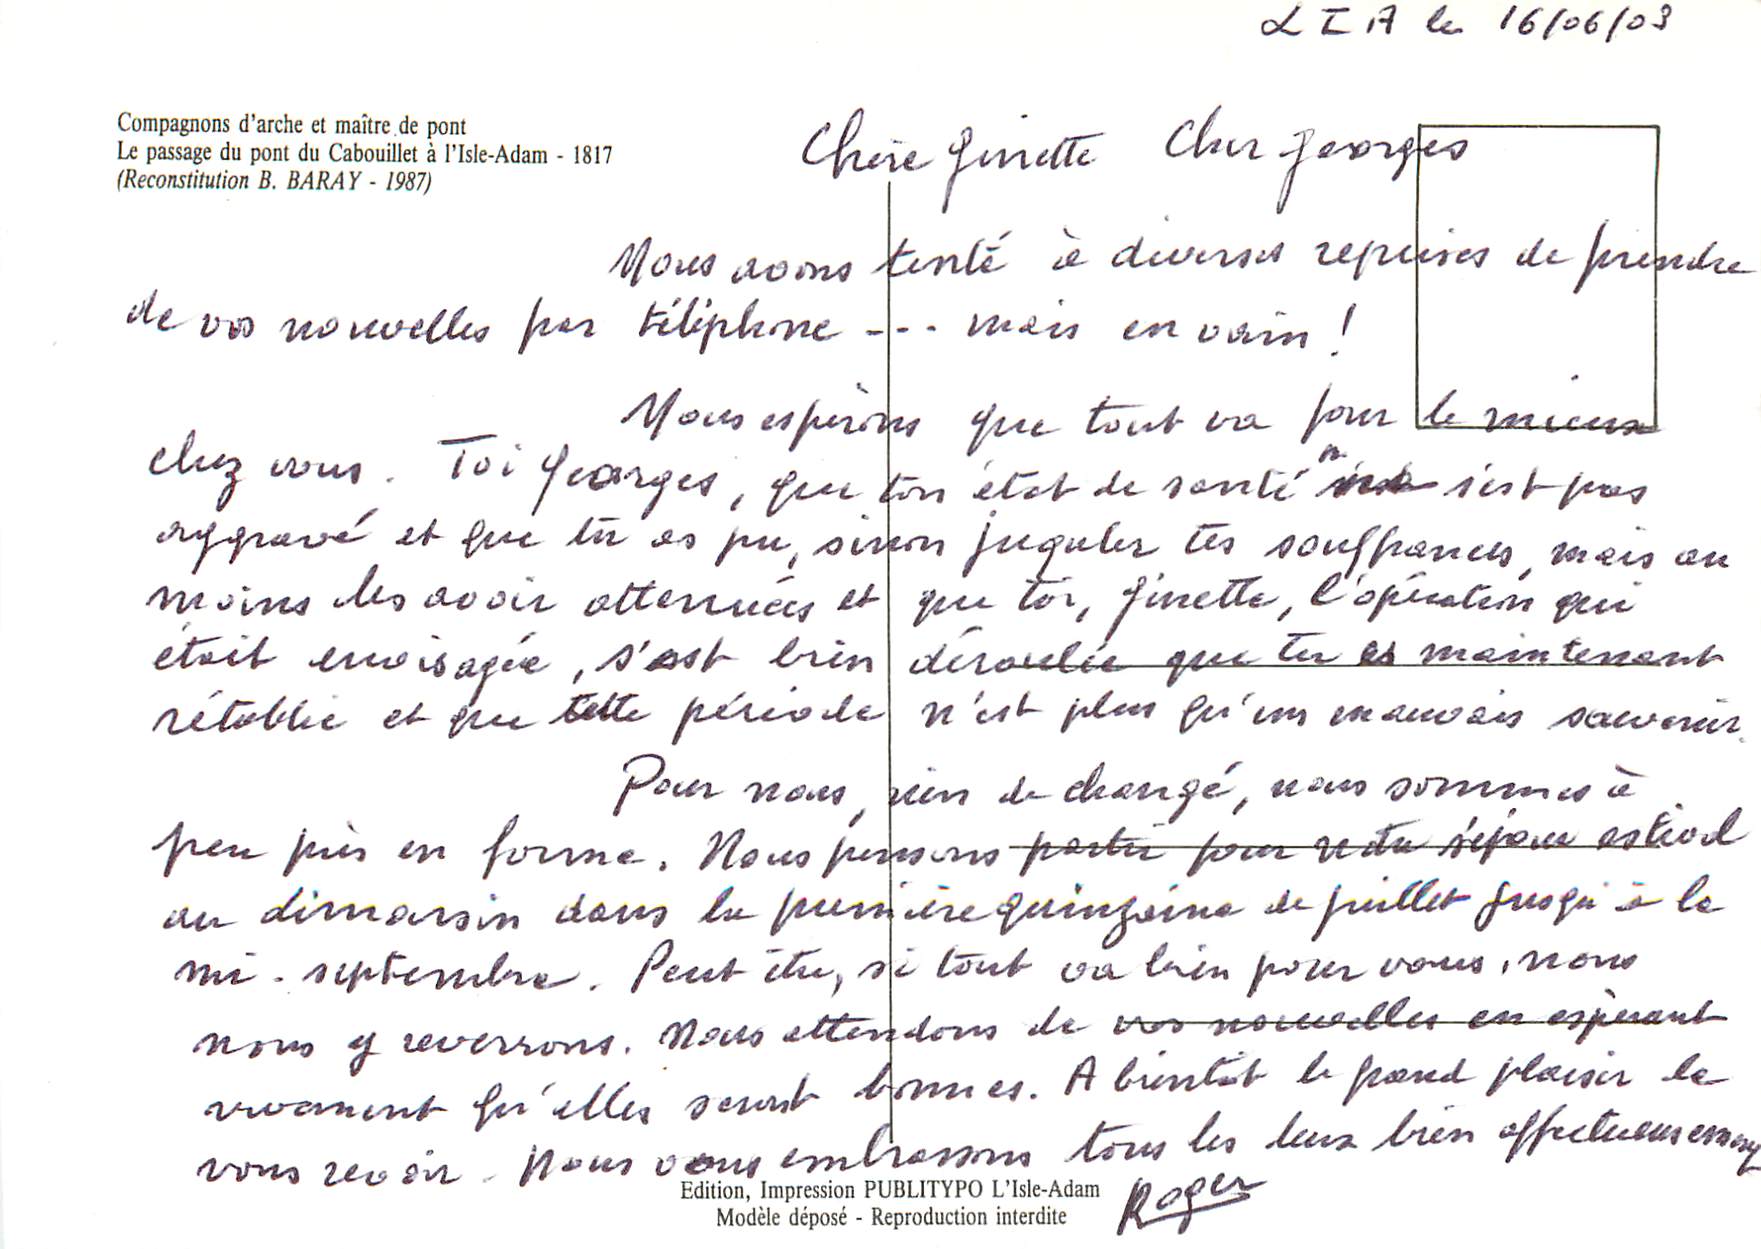 LIA le 16/06/03
Compagnons d'arche et maître de pont
Le passage du pont du Cabouillet à l'Isle-Adam - 1817
(Reconstitution B. BARAY - 1987)
Chère Ginette Cher Georges
Nous avons tenté à diverses reprises de prendre
de vos nouvelles par téléphone --- mais en vain !
Nous espérons que tout va pour le mieux
chez vous. Toi Georges, que ton état de santé n s'est pas
aggravé et que tu as pu, sinon juguler tes souffrances, mais au
moins les avoir attenuées et que toi, Ginette, l'opération qui
était envisagée, s'est bien déroulée que tu es maintenant
rétablie et que cette période n'est plus qu'un mauvais souvenir.
Pour nous, rien de changé, nous sommes à
peu près en forme. Nous pensons partir pour notre séjour estival
au dimarsin dans la première quinzaine de juillet jusqu'à la
mi-septembre. Peut être, si tout va bien pour vous, nous
nous y reverrons. Nous attendons de vos nouvelles en espérant
vivement qu'elles seront bonnes. A bientôt le grand plaisir de
vous revoir. Nous vous embrassons tous les deux bien affectueusement
Roger
Edition, Impression PUBLITYPO L'Isle-Adam
Modèle déposé - Reproduction interdite